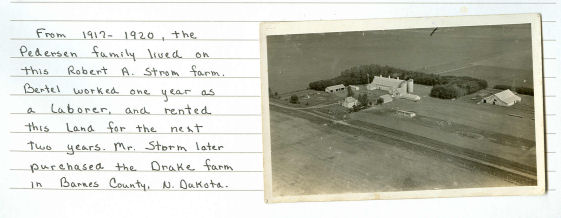 From 1917-1920, the
Pedersen family lived on
this Robert A. Strom farm.
Bertel worked one year as
a laborer, and rented
this land for the next
two years. Mr. Storm later
purchased the Drake farm
in Barnes County, N. Dakota.